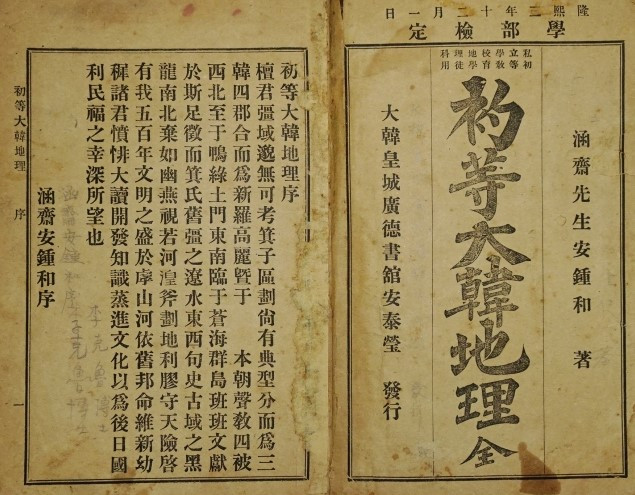 隆熙三年十二月一日
學部檢定
私立學校地理科
初等敎育學徒用
涵齋先生安鍾和 著
初等大韓地理全
大韓皇城廣德書舘安泰瑩 發行
初等大韓地理序
檀君疆域邈無可考箕子區劃尙有典型分而爲三
韓四郡合而爲新羅高麗曁于 本朝聲敎四被
西北至于鴨綠土門東南臨于蒼海群島班班文獻
於斯足徵而箕氏舊疆之遼水東西句史古域之黑
龍南北棄如幽燕視若河湟斧劃地利膠守天險啓
有我五百年文明之盛於虖山河依舊邦命維新幼
穉諸君憤悱大讀開發知識蒸進文化以爲後日國
利民福之幸深所望也
涵齋安鍾和序
李克魯博士
涵齋安鍾和
初等大韓地理 序 一